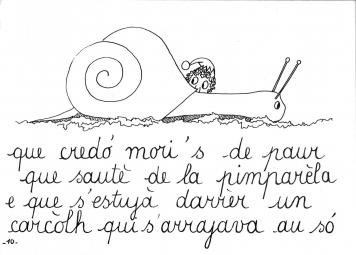 que credó mori's de paur
que sautè de la pimparèla
e que s'estujà darrèr un
carcòlh qui s'arrajava au só
-10-